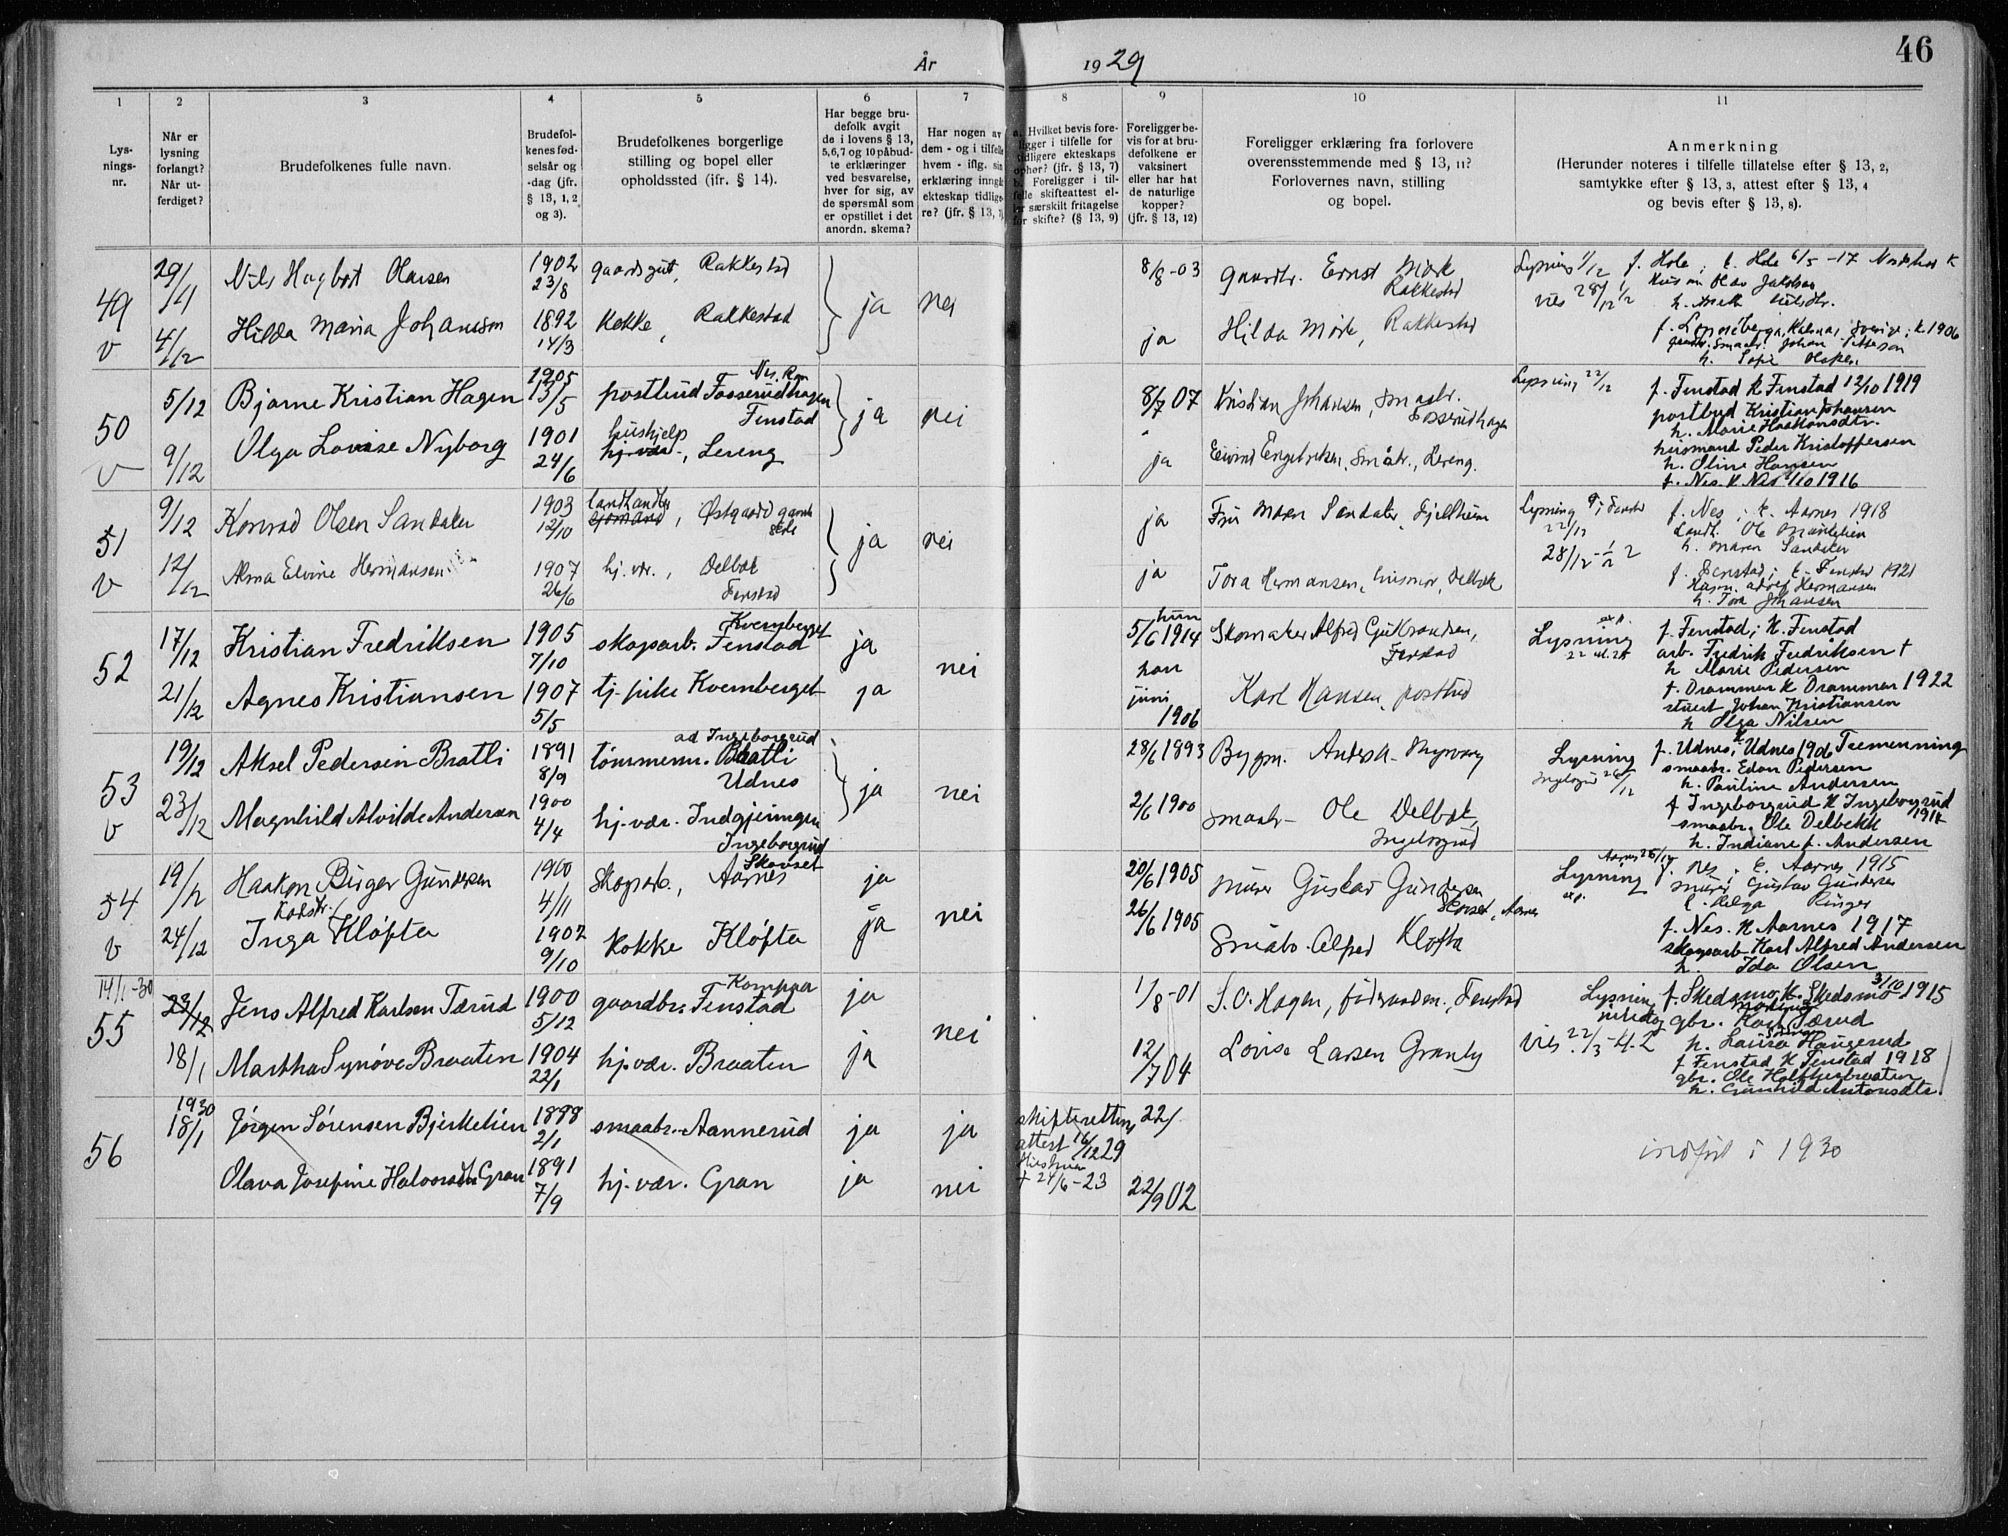 46
År 1929
1 2 3 4 5 6 7 8 9 10 11
Lys-
nings-
nr.
Når er
lysning
forlangt?
Når ut-
ferdiget?
Brudefolkenes fulle navn.
Brudefol-
kenes fød-
selsår og
-dag (jfr.
§ 13, 1, 2
og 3).
Brudefolkenes borgerlige
stilling og bopel eller
opholdssted (ifr. § 14).
Har begge bru-
defolk avgit
de i lovens § 13,
5, 6, 7 og 10 påbud-
te erklæringer
ved besvarelse,
hver for sig, av
de spørsmål som
er opstillet i det
anordn. skema?
Har nogen av
dem - og i tilfelle
hvem - iflg. sin
erklæring inngå
ekteskap tidlige-
re? (jfr. § 13,
a. Hvilket bevis fore-
ligger i tilfelle for
tidligere ekteskaps
ophør? (jfr. § 13, 7)
b. Foreligger i til-
felle skifteattest el-
ler særskilt fritagelse
for skifte? (§ 13, 9)
Foreligger be-
vis for at bru-
defolkene er
vaksinert
eller har hat
de naturlige
kopper?
(jfr. § 13, 12)
Foreligger erklæring fra forlovere
overensstemmende med § 13, 11?
Forlovernes navn, stilling
og bopel.
Anmerkning
(Herunder noteres i tilfelle tillatelse efter § 13, 2,
samtykke efter § 13, 3, attest efter § 13, 4
og bevis efter § 13, 8).
49 v
29/11 Nils Hagbart Olausen 1902 23/8 gaardsgut, Rakkestad ja nei 8/8-03 gaardbr. Ernst Mørk Rakkestad
4/12 Hilda Maria Johansson 1892 14/3 Kokke, Rakkestad ja Hilda Mørk, Rakkestad
Lysning 1/12
f. Hole
h. Sofi
50 v
5/12 Bjarne Kristian Hagen 1905 13/5 postbud Fosserudhagen Fenstad ja nei 8/7 07 Kristian Johansen, smaabr. Fosserudhagen
9/12 Olga Lovise Nyborg 1901 24/6 hushjelp hj. vær., Lereng ja Eivind Engebretsen, småbr., Lereng.
Lysning 22/12
f. Fenstad k Fenstad 12/10 1919
postbud Kristian Johansen
h. Marie Haakonsdtr.
husmand Peder Kristoffersen
h. Oline Hansen
f. Nes. k. Nes 1/10 1916
51 v
9/12 Konrad Olsen Sandaker 1903 12/10 landhandler, Østgaard gamle ja nei ja Fru Maren Sandaker, Fjellheim
12/12 Alma Elvine Hermansen 1907 26/6 hj. vær., Delbæk Fenstad ja Tora Hermansen, husmor, Delbæk
Lysning
22/12
28/12
f. Nes; k. Aarnes 1918
Landh. Ole
h. Maren Sandaker
f. Fenstad; k. Fenstad 1921
h. Tora Johansen
52
17/12 Kristian Fredriksen 1905 7/10 skogsarb. Fenstad Kvernberget ja nei hun 5/6 1914 Skomaker Alfred Gulbrandsen, Fenstad
21/12 Agnes Kristiansen 1907 5/5 tj. pike Kvernberget ja han juni 1906 Karl Hansen, postbud
Lysning
f. Fenstad; k. Fenstad
arb. Fredrik Fredriksen †
h Marie Pedersen
f. Drammen k Drammen 1922
stuert Johan Kristiansen
h Olga Nilsen
53 v
19/12 Aksel Pedersen Bratli 1891 8/9 tømmerm. Bratli Udnes ad Ingeborgrud ja nei 28/6 1893 Bygm. Anders A. Myrvang
23/12 Magnhild Alvilde Andersen 1900 4/4 hj. vær. Indgjeringen Ingeborgrud 2/6 1900 smaabr. Ole Delbæk, Ingeborgrud
Lysning
f. Udnes; k Udnes 1906 Tremenning
smaabr. Edon Pedersen
h. Pauline Andersen
f Ingeborgrud k Ingeborgrud 1914
smaabr. Ole Delbekk
h. Indiane f. Andersen
54 v
19/12 Haakon Birger Gundersen 1900 4/11 Skogsarb., Aarnes Skovset ja nei 20/6 1905 murer Gustav Gundersen Skovset, Aarnes
24/12 Inga Kløfta 1902 9/10 Kokke Kløfta ja 26/6 1905 Småbr. Alfred Kløfta
Lysning
f. Nes; k. Aarnes 1915
murer Gustav Gundersen
f. Helga Ringer
f. Nes. k Aarnes 1917
skogsarb Karl Alfred Andersen
h. Ida Olsen
14/1-30
55
23/12 Jens Alfred Karlsen Tærud 1900 5/12 gaardbr. Fenstad Kompaa ja nei 1/8-01 S. O. Hagen, føderaadsm. Fenstad
18/1 Martha Synøve Braaten 1904 22/1 hj. vær. Braaten ja 12/7 04 Lovise Larsen Granby
Lysning nittedag
vies 22/3-4.2
f. Skedsmo, k. Skedsmo 3/10 1915
gbr. Karl Tærud
h. Laura Haugerud
f Fenstad k Fenstad 1918
gbr. Ole Holtherbraaten
h. Gunhild Antonsdtr.
56
1930
18/1 Jørgen Sørensen Bjerkelien 1888 2/1 smaabr. Aannerud ja ja skifteretten attest 16/12 29 22/
Olava Josefine Halvorsdtr Gran 1891 7/9 hj. vær. Gran ja nei † 24/6-23 22/9 02
indført i 1930